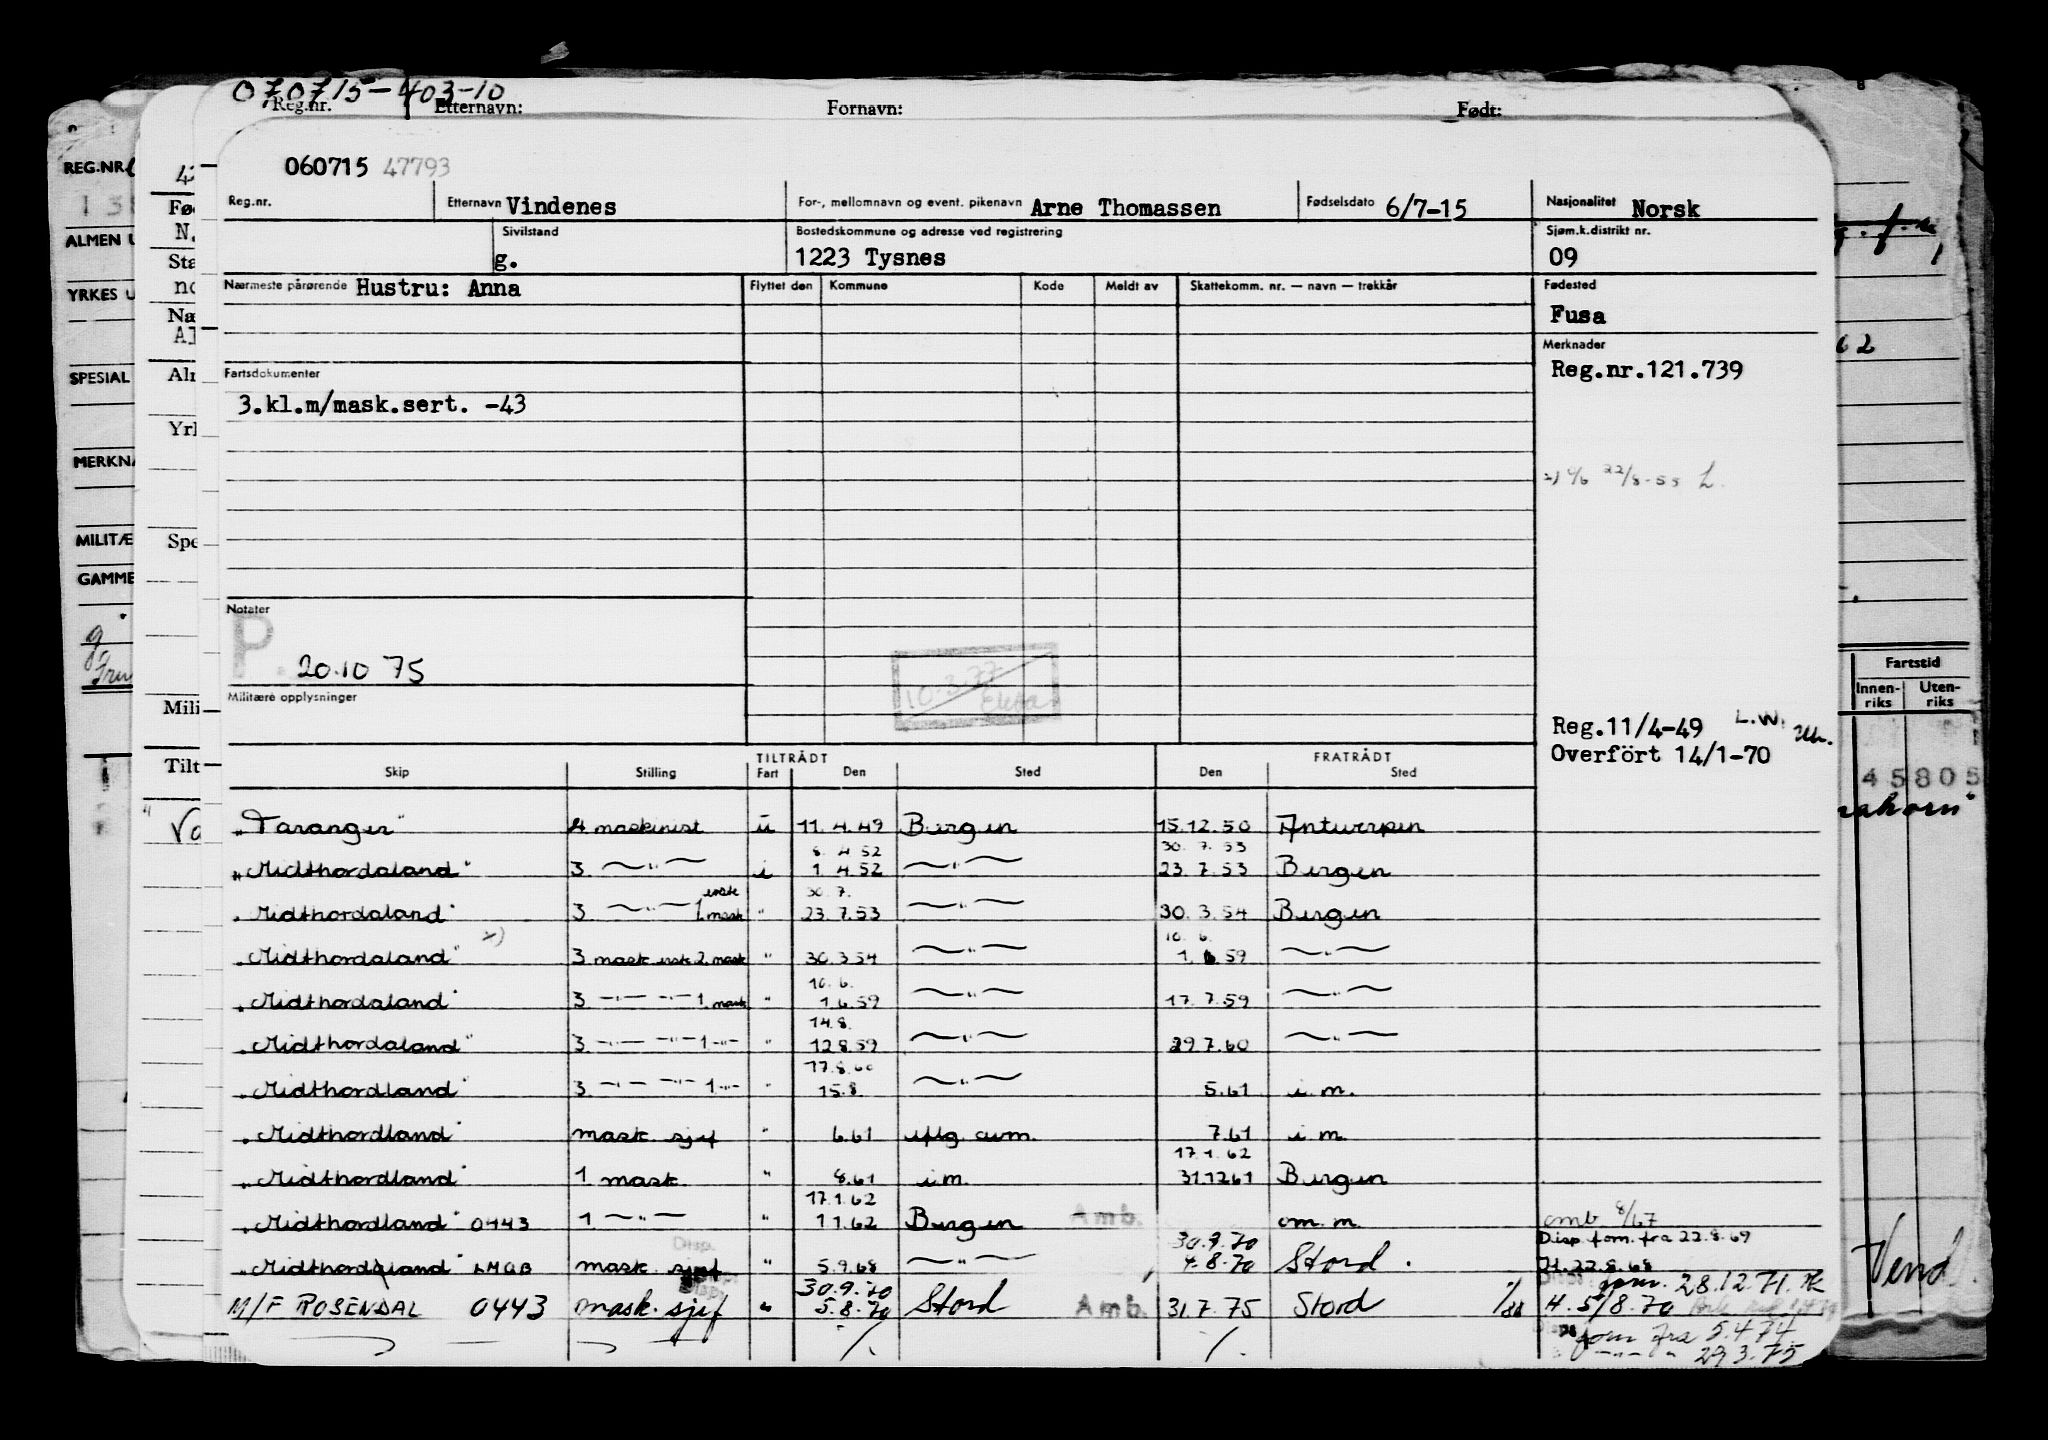 070715-403-10
Reg.nr. Etternavn: Fornavn: Født:
060715 47793
Reg.nr. Etternavn Vindenes For-, mellomnavn og event. pikenavn Arne Thomassen Fødselsdato 6/7-15 Nasjonalitet Norsk
Sivilstand g. Bostedskommune og adresse ved registrering 1223 Tysnes Sjøm.k.distrikt nr. 09
Nærmeste pårørende Hustru: Anna Flyttet den Kommune Kode Meldt av Skattekomm. nr. — navn — trekkår Fødested
Fusa
Merknader
Fartsdokumenter Reg.nr.121.739
3.kl.m/mask.sert. -43
22/8-55 L.
Notater
P. 20.10 75
10.3.77
Militære opplysninger
Reg.11/4-49 L.W.
Overfört 14/1-70
TILTRÅDT FRATRÅDT
Skip Stilling Fart Den Sted Den Sted
"Taranger" 4 maskinist u 11.4.49 Bergen 15.12.50 Antwerpen
8. 4 52 30. 7. 53
"Midthordaland" 3. —"— i 1 4.52 —"— 23.7.53 Bergen
30.7.
"Midthordaland" 3. —"— 1. mask " 23.7.53 —"— 30.3.54 Bergen
x) 10. 6.
"Midthordaland" 3 mask 2. mask " 30.3.54 —"— 1.6.59 —"—
10.6.
"Midthordaland" 3 —"— —"— 1. mask " 1.6.59 —"— 17.7.59 —"—
14.8.
"Midthordaland" 3. —"— —"— 1 —"— " 12.8.59 —"— 29.7.60 —"—
17.8.60
"Midthordland" 3. —"— —"— 1 —"— " 15.8. —"— 5.61 i.m.
"Midthordland" mask. sjef " 6.61 7.61 i m
17.1.62
"Midthordland" 1 mask. " 8.61 i m. 31.12.61 Bergen
17.1.62
"Midthordland" 0443 1 —"— " 1 1.62 Bergen Amb. om. m. omb 8/67
Disp. 30.9.70 Disp fom. fra 22.8.69
"Midthordland" LMQB mask sjef " 5.9.68 —"— 4.8.70 Stord. H.22.8.68
30.9.70 28.12.71.
M/F ROSENDAL 0443 mask. sjef " 5.8.70 Stord Amb. 31.7.75 Stord H. 5/8.70
fom fra 5.4 74
—"— " 29 3.75
REG.NR.
MILITÆ
Fartstid
Innenriks Utenriks
45805
Vend